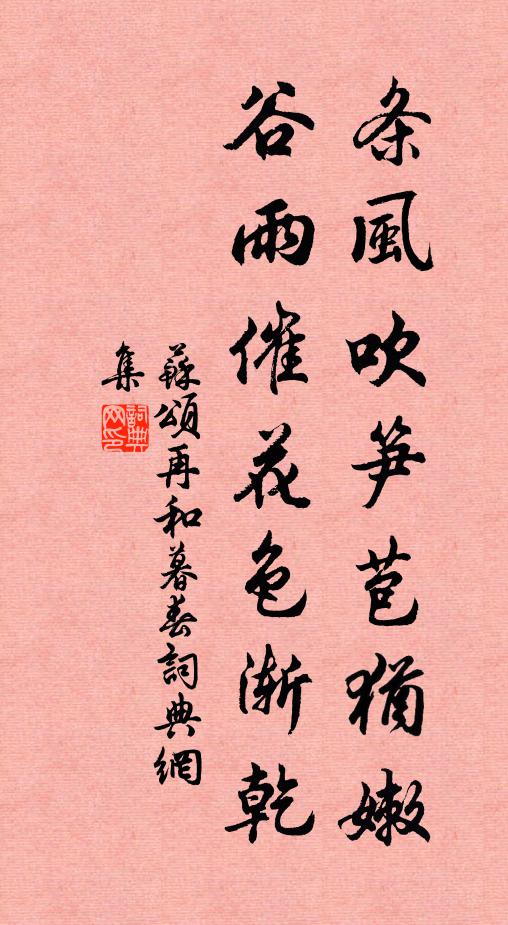 条風吹笋苞猶嫩
谷雨催花色漸乾
蘇頌再和暮春詞典網
集
詞典网印